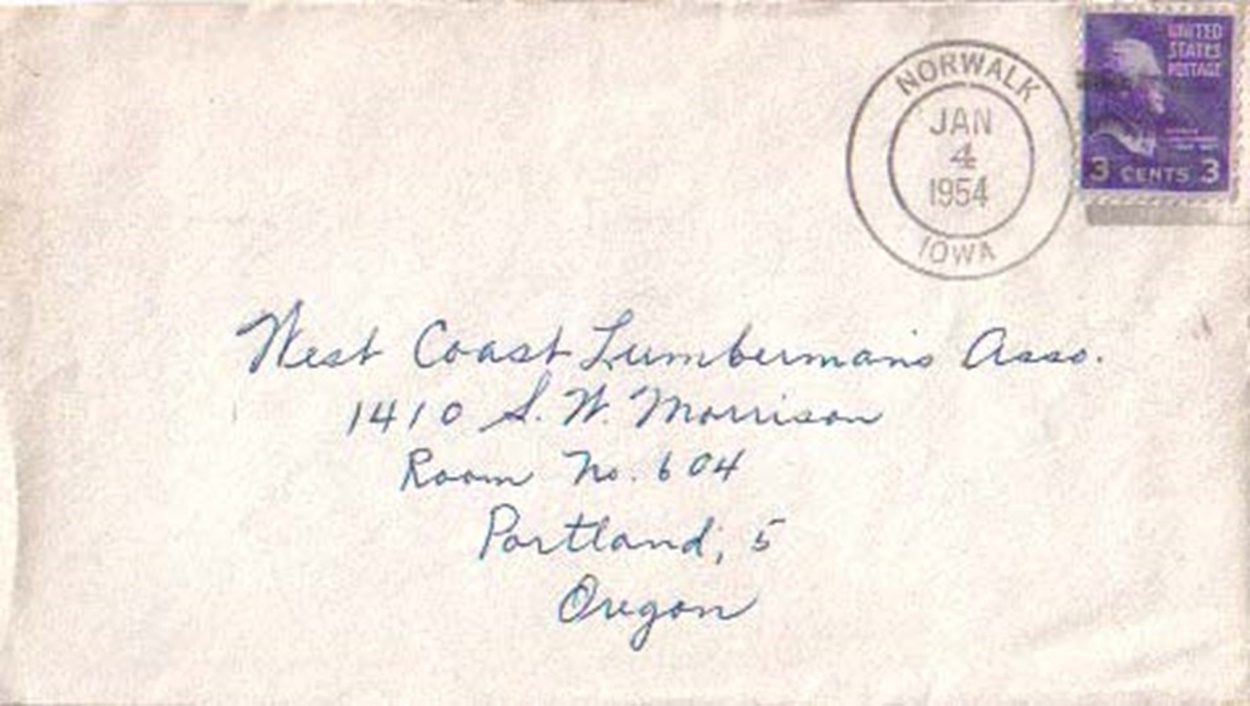 NORWALK
JAN
4
1954
IOWA
UNITED
STATES
POSTAGE
3 CENTS 3
West Coast Lumberman's Asso.
1410 S. W. Morrison
Room No. 604
Portland, 5
Oregon